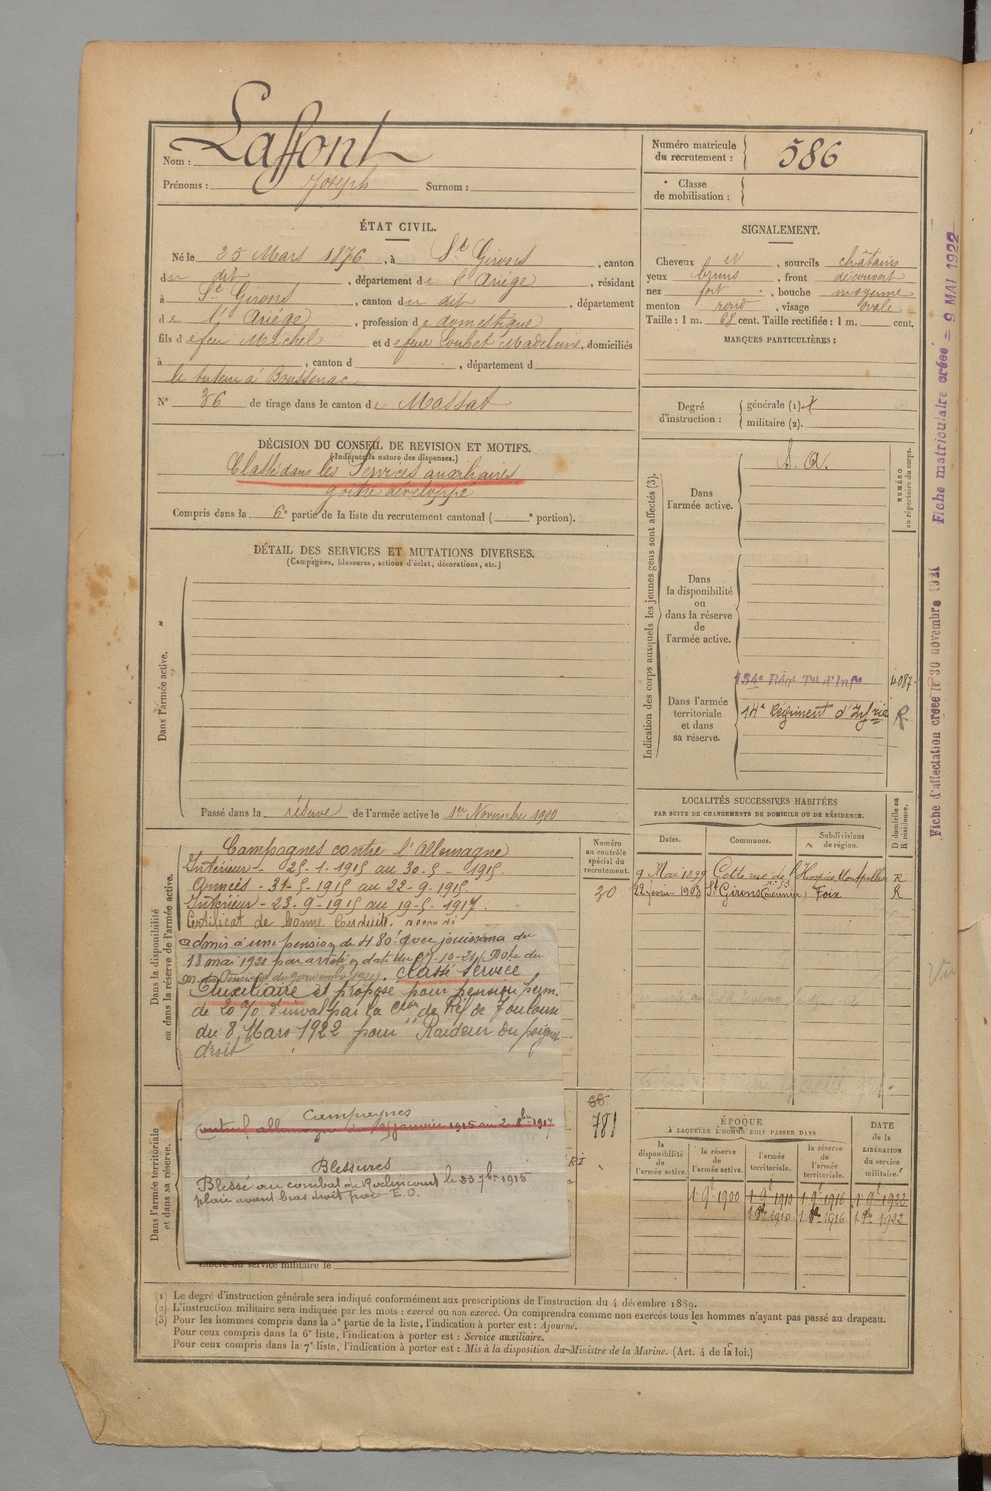 Nom : Laffont
Prénoms : Joseph Surnom :
Numéro matricule du recrutement : 586
Classe de mobilisation :
ÉTAT CIVIL.
Né le 25 Mars 1876, à St Girons, canton
du dit, département de l'Ariège, résidant
à St Girons, canton du dit, département
de l'Ariège, profession de domestique
fils de feu Michel et de feue Loubet Madeleine, domiciliés
à , canton d , département d
le tuteur à Brussenac
N° 36 de tirage dans le canton de Massat
SIGNALEMENT.
Cheveux et, sourcils châtains
yeux bruns, front découvert
nez fort, bouche moyenne
menton rond, visage ovale
Taille : 1 m. 68 cent. Taille rectifiée : 1 m. cent.
MARQUES PARTICULIÈRES :
Degré d'instruction : générale (1).
militaire (2).
DÉCISION DU CONSEIL DE REVISION ET MOTIFS.
(Indiquer la nature des dispenses.)
Classé dans les Services auxiliaires
goitre développé
Compris dans la 6e partie de la liste du recrutement cantonal ( e portion).
DÉTAIL DES SERVICES ET MUTATIONS DIVERSES.
(Campagnes, blessures, actions d'éclat, décorations, etc.)
Dans l'armée active.
Passé dans la réserve de l'armée active le 1er Novembre 1900
Indication des corps auxquels les jeunes gens sont affectés (3).
NUMÉRO au répertoire du corps.
Dans l'armée active.
S. A.
Dans la disponibilité ou dans la réserve de l'armée active.
Dans l'armée territoriale et dans sa réserve.
134e Régt Tal d'Infie 4087
14e Régiment d'Infrie R
LOCALITÉS SUCCESSIVES HABITÉES
PAR SUITE DE CHANGEMENTS DE DOMICILE OU DE RÉSIDENCE.
Dates. Communes. Subdivisions de région. D domicile ou R résidence.
9 Mai 1899 Cette Hospice Montpellier R
1908 St Girons Foix R
Dans la disponibilité ou dans la réserve de l'armée active.
Numéro au contrôle spécial du recrutement.
30
Campagnes contre l'Allemagne
Intérieur - 25-1-1915 au 30-5-1915
Armées - 31-5-1915 au 22-9-1915
Intérieur - 23-9-1915 au 19-5-1917.
Certificat de bonne conduite
admis à une pension de 480f avec jouissance du
18 mai 1920 par arrêté
classé service
Auxiliaire et proposé pour pension perm.
de 20 % d'inval par la Con de Réf de Toulouse
du 8 Mars 1922 pour " Raideur du poignet
droit
Dans l'armée territoriale et dans sa réserve.
Campagnes
contre l'allemagne du 25 janvier 1915 au 2 8bre 1917
Blessures
Blessé au combat de Roclincourt le 23 7bre 1915
plaie avant bras droit par E. O.
Libéré du service militaire le
66
781
ÉPOQUE
À LAQUELLE L'HOMME DOIT PASSER DANS
la disponibilité de l'armée active.
la réserve de l'armée active.
l'armée territoriale.
la réserve de l'armée territoriale.
DATE de la LIBÉRATION du service militaire.
1 9 1900 1 9 1910 1 9 1916 1 9 1922
1 8 1910 1 8 1916 1 8 1922
(1) Le degré d'instruction générale sera indiqué conformément aux prescriptions de l'instruction du 4 décembre 1889.
(2) L'instruction militaire sera indiquée par les mots : exercé ou non exercé. On comprendra comme non exercés tous les hommes n'ayant pas passé au drapeau.
(3) Pour les hommes compris dans la 5e partie de la liste, l'indication à porter est : Ajourné.
Pour ceux compris dans la 6e liste, l'indication à porter est : Service auxiliaire.
Pour ceux compris dans la 7e liste, l'indication à porter est : Mis à la disposition du Ministre de la Marine. (Art. 4 de la loi.)
Fiche d'affectation créée le 30 novembre 1921 Fiche matriculaire créée = 9 MAI 1922